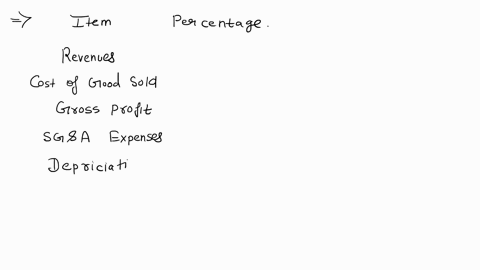 ⇒ Item Percentage.
Revenues
Cost of Good Sold
Gross Profit
SG&A Expenses
Depriciati